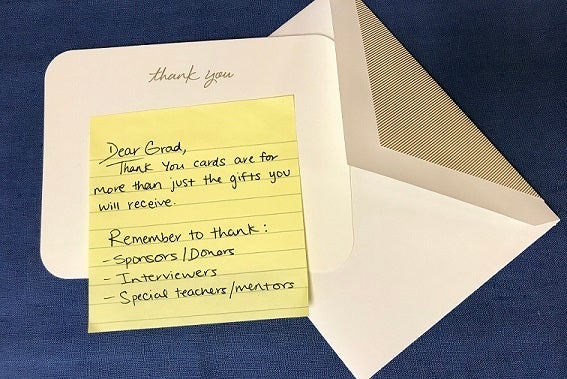 thank you
Dear Grad,
Thank You cards are for
more than just the gifts you
will receive.
Remember to thank:
- Sponsors/Donors
- Interviewers
- Special teachers/mentors